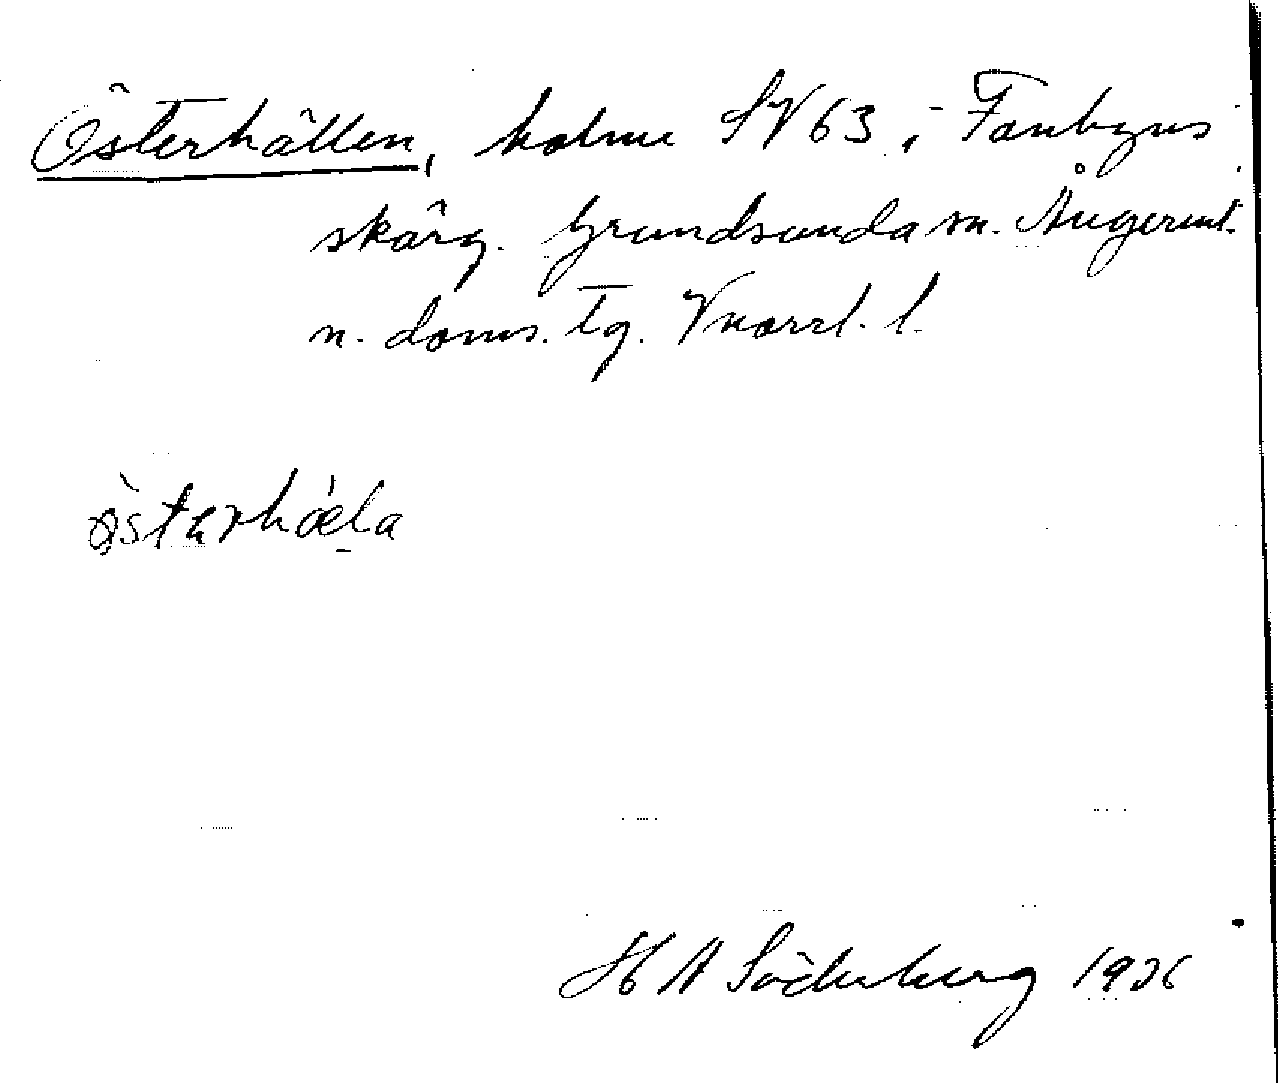 Österhällen, holme SV 63 i Fanbyns
skärg. Grundsunda sn. Ångerml.
n. doms. tg. Vnorrl. l.
østarhæla
H A Söderberg 1926